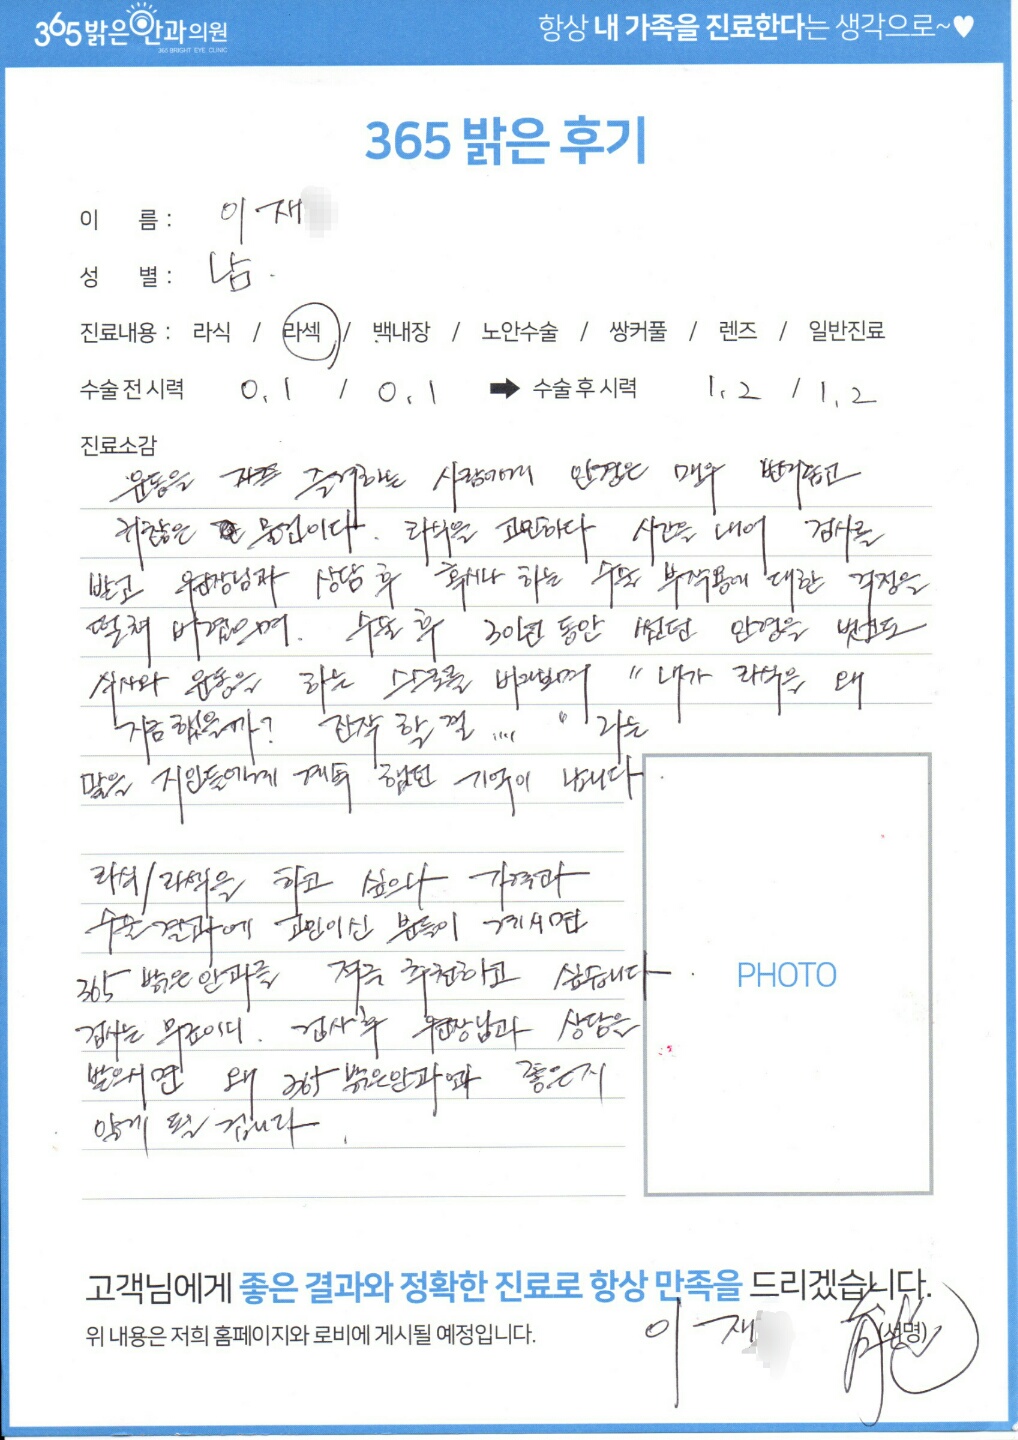 365밝은안과의원
365 BRIGHT EYE CLINIC
항상 내 가족을 진료한다는 생각으로~♥
365 밝은 후기
이 름 : 이재
성 별 : 남.
진료내용 : 라식 / 라섹 / 백내장 / 노안수술 / 쌍커풀 / 렌즈 / 일반진료
수술 전 시력 0.1 / 0.1 ➡ 수술 후 시력 1.2 / 1.2
진료소감
운동을 즐겨하는 사람에게 안경은 매우 번거롭고
귀찮은 물건이다. 라식을 고민하다 시간을 내어 검사를
받고 원장님과 상담 후 혹시나 하는 수술 부작용에 대한 걱정을
떨쳐 버렸으며. 수술 후 30년 동안 썼던 안경을 벗고
식사와 운동을 하는 스스로를 바라보며 "내가 라식을 왜
지금 했을까? 진작 할 걸 .... " 라는
말을 지인들에게 계속 했던 기억이 납니다
라식/라섹을 하고 싶으나 가격과
수술결과에 고민이신 분들이 계시면
365 밝은안과를 적극 추천하고 싶습니다.
검사는 무료이니. 검사후 원장님과 상담을
받으시면 왜 365밝은안과가 좋은지
알게 될 겁니다.
PHOTO
고객님에게 좋은 결과와 정확한 진료로 항상 만족을 드리겠습니다.
위 내용은 저희 홈페이지와 로비에 게시될 예정입니다.
이재 (서명)